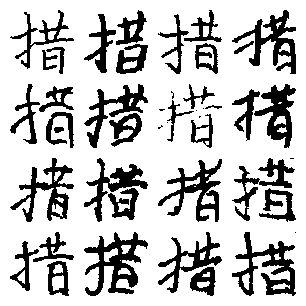 措措措措
措措措措
措措措措
措措措措